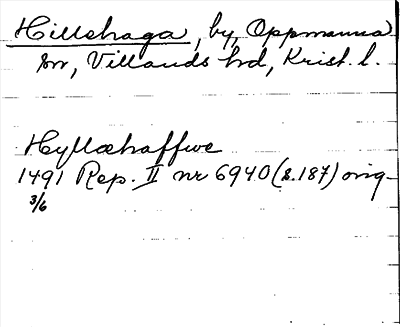 Hillshaga, by, Oppmanna
sn, Villands hd, Krist. l.
Hyllæhaffwe
1491 Rep. II nr 6940 (s. 187) orig
3/6